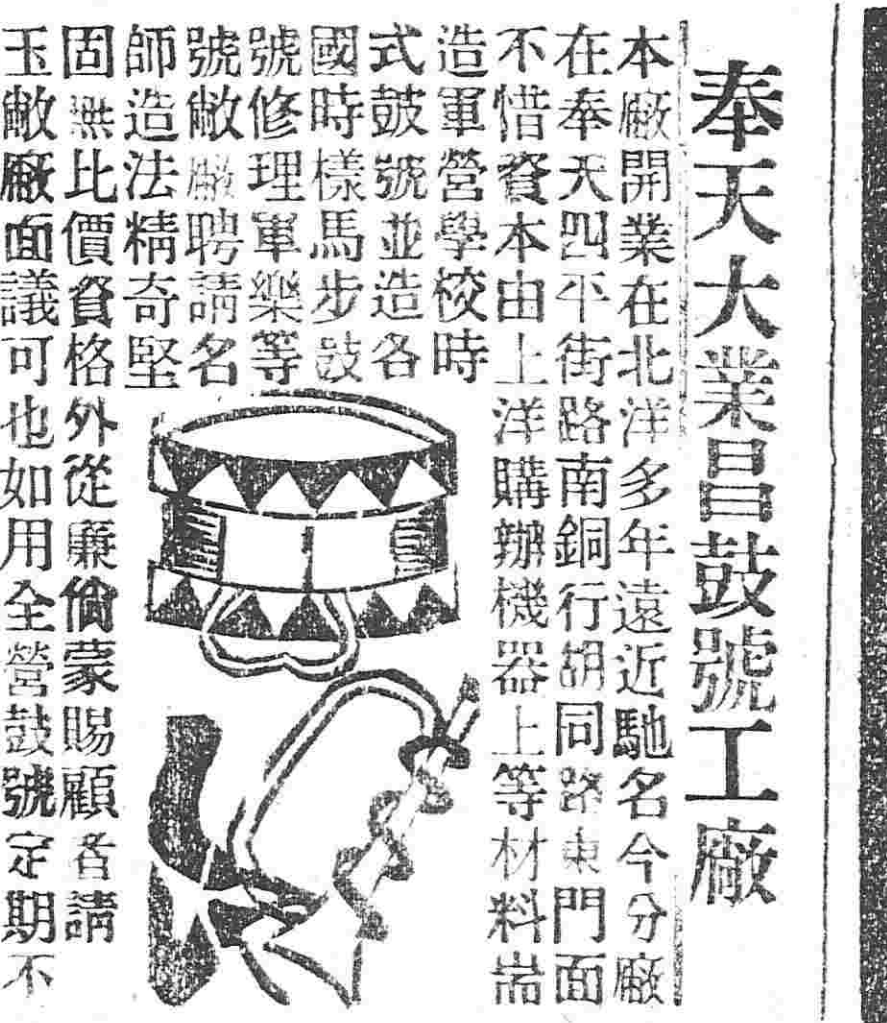 奉天大業昌鼓號工廠
本廠開業在北洋多年遠近馳名今分廠
在奉天四平街路南銅行胡同路東門面
不惜資本由上洋購辦機器上等材料耑
造軍營學校時
式鼓號並造各
國時樣馬步鼓
號修理軍樂等
號敝廠聘請名
師造法精奇堅
固無比價資格外從廉倘蒙賜顧者請
玉敝廠面議可也如用全營鼓號定期不